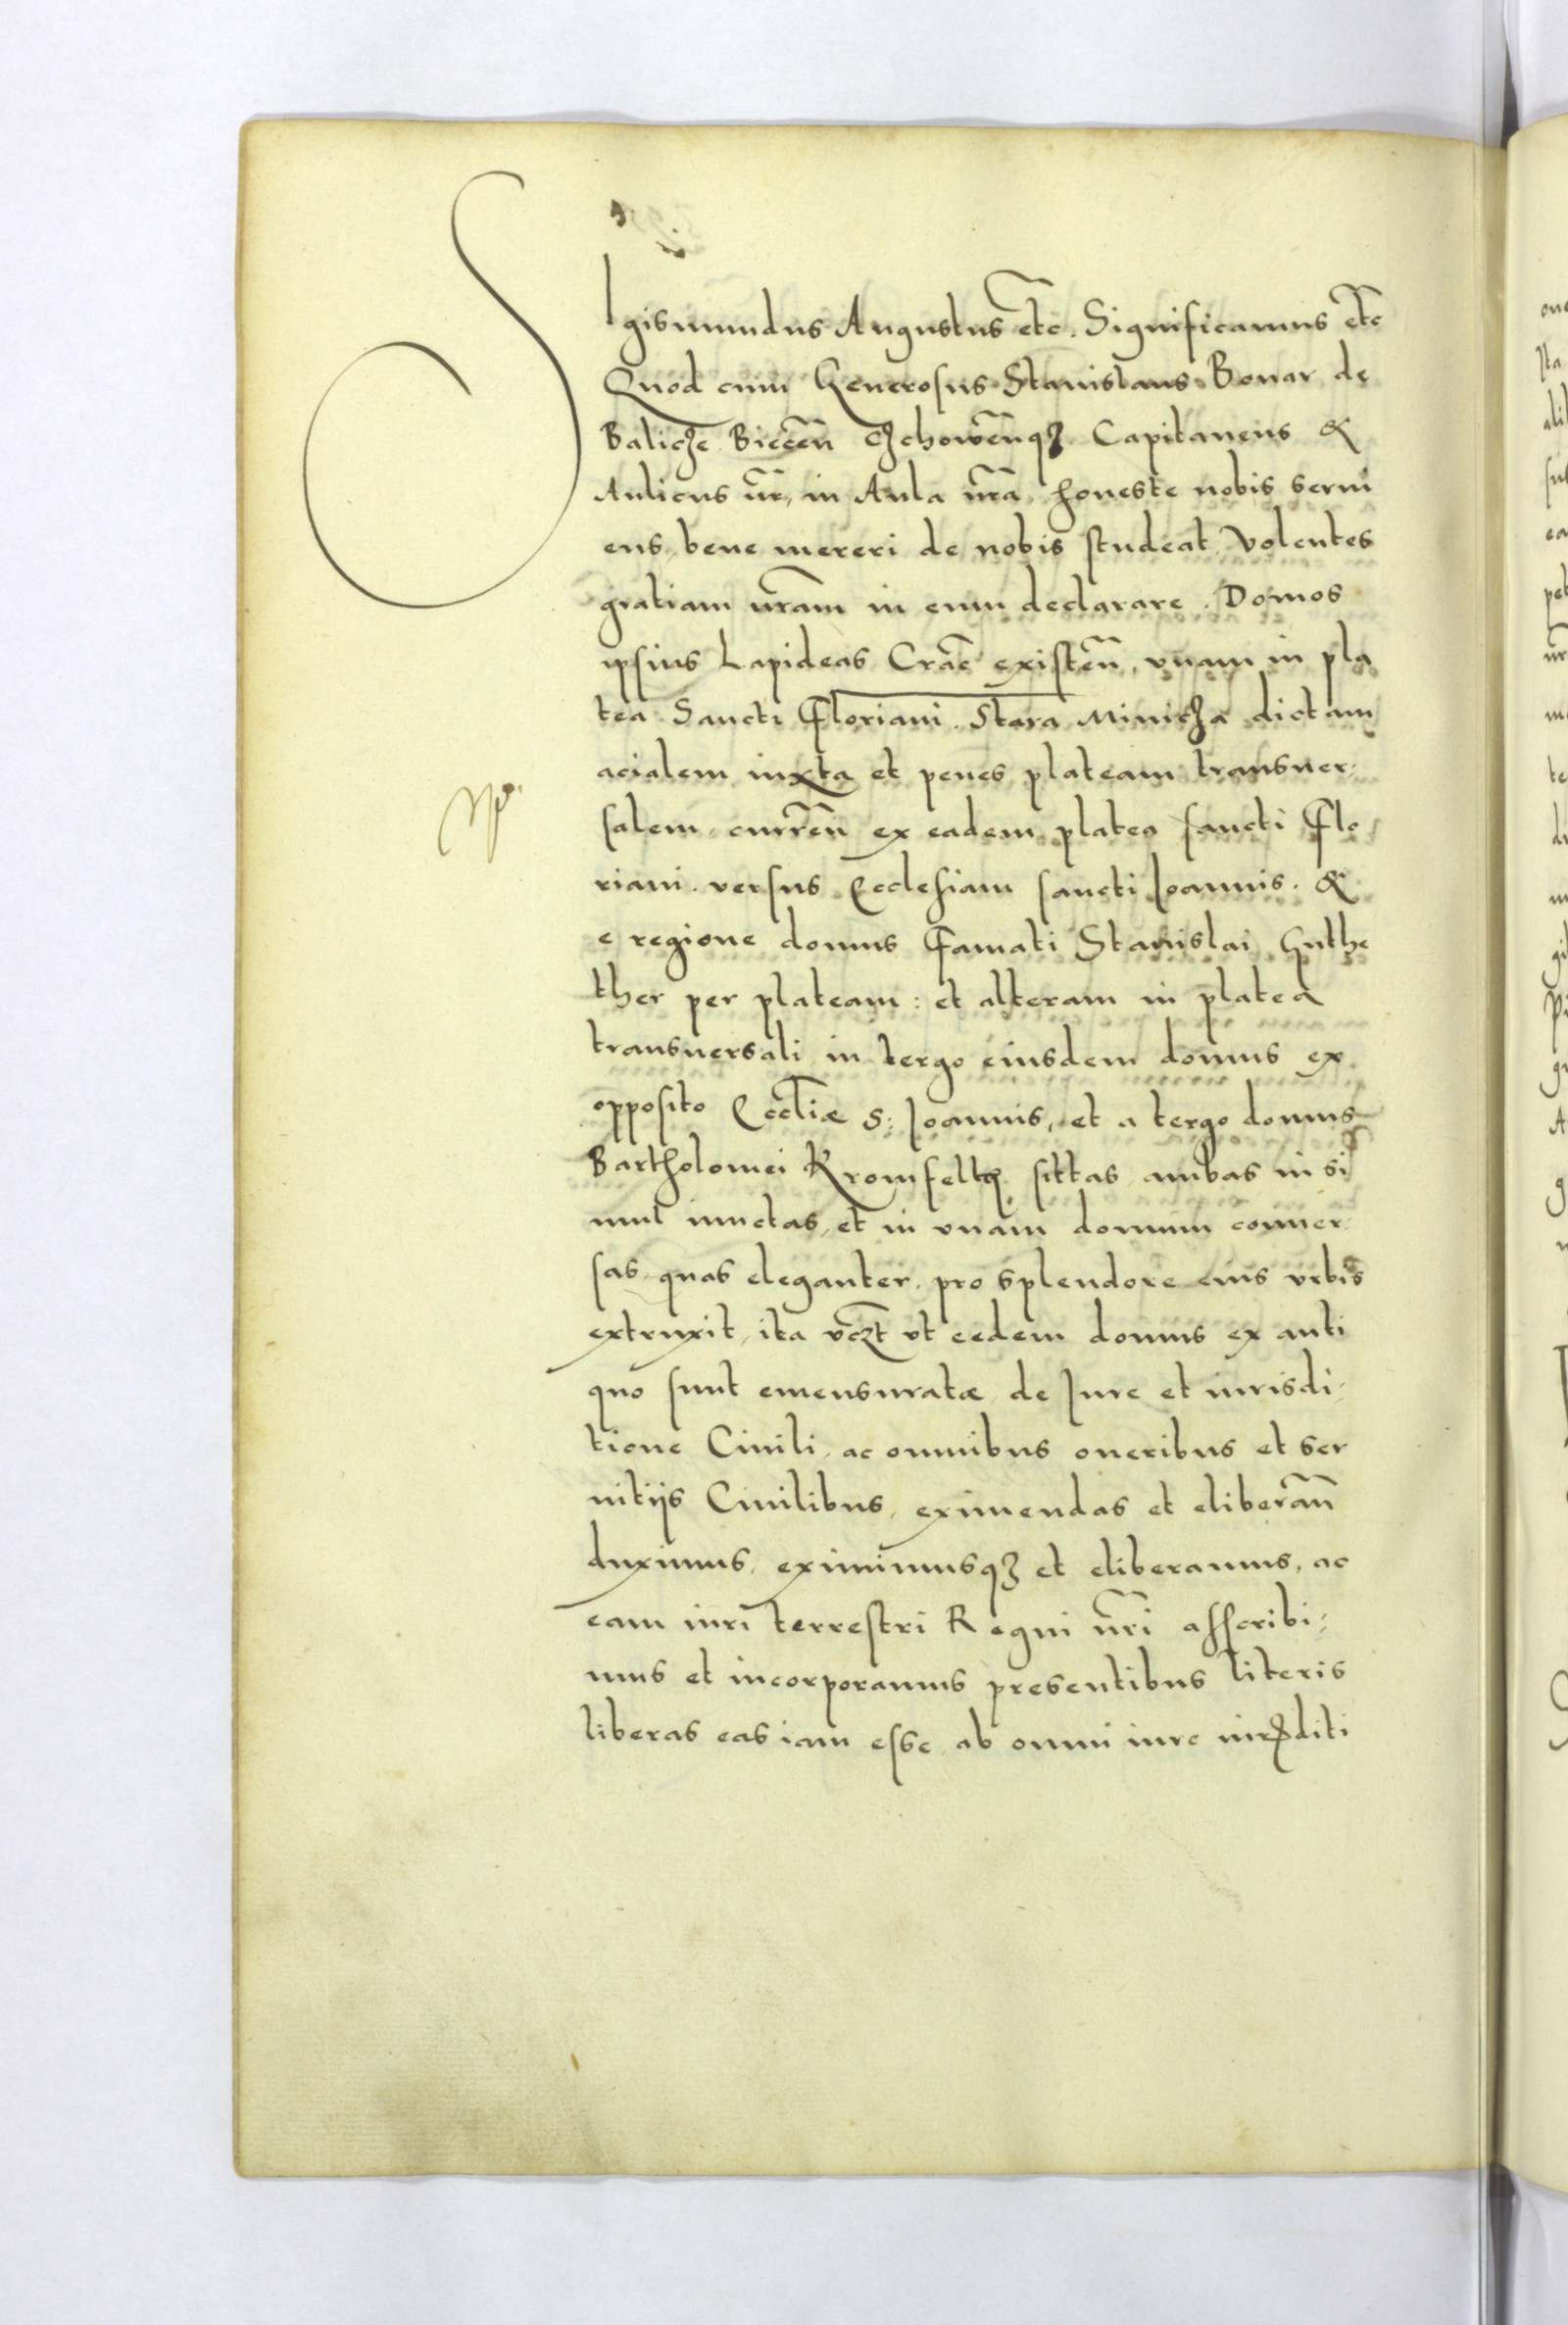 SIgismundus Augustus etc. Significamus etc
Quod cum Generosus Stanislaus Bonar de
Balicze Biecen̄ Czchowen̄qꝫ Capitaneus &
Aulicus nr̄, in Aula nr̄a honeste nobis serui
ens, bene mereri de nobis studeat Volentes
gratiam nr̄am in eum declarare. Domos
ipsius Lapideas Crac̄ existen̄, vnam in pla
tea Sancti Floriani. Stara Minicza dictam
acialem iuxta et penes plateam transuer
salem, curren̄ ex eadem platea sancti Flo
riani. versus Ecclesiam sancti Ioannis. &
e regione domus Famati Stanislai Guthe
ther per plateam: et alteram in platea
transuersali in tergo eiusdem domus ex
opposito Eccl̄iæ S: Ioannis, et a tergo domus
Bartholomei Kromfelth sittas ambas in si
mul iunctas, et in vnam domum conuer
sas, quas eleganter, pro splendore eius vrbis
extruxit, ita vcꝫt vt eedem domus ex anti
quo sunt emensuratæ de Iure et iurisdi
tione Ciuili, ac omnibus oneribus et ser
uitijs Ciuilibus, eximendas et eliberan̄
duximus, eximimusqꝫ et eliberamus, ac
eam iuri terrestri Regni nr̄i asscribi
mus et incorporamus presentibus literis
liberas eas iam esse ab omni iure